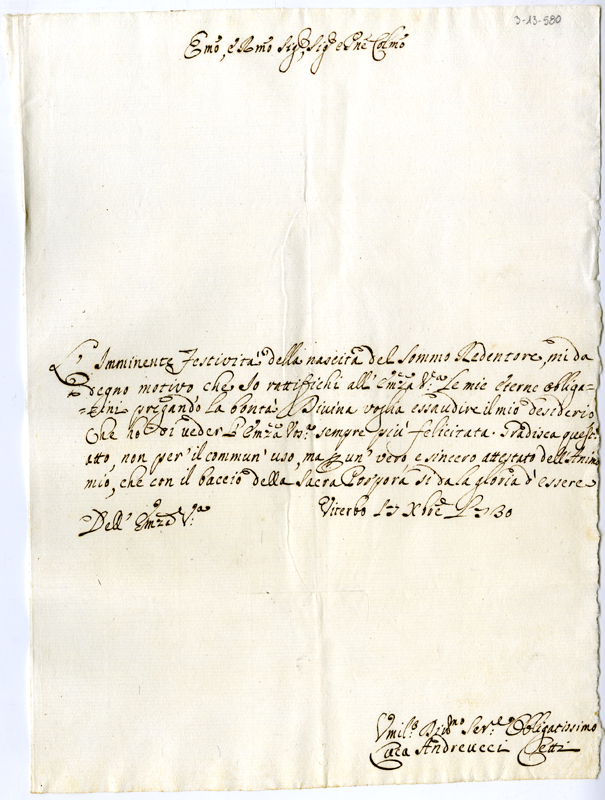 3-13-980
Emo, e Rmo Sigr, Sigr e Pne Colmo
L'Imminente Festività della nascità del Sommo Redentore, mi da
degno motivo che Io rattifichi all'Emza Va Le mie eterne obliga=
=zni pregando la bontà Divina voglia essaudire il mio desiderio
Che ho di veder L'Emza Vra sempre più felicitata. Gradisca quest'
atto, non per il commun' uso, ma p un' vero e sincero attestato dell'Animo
mio, che con il baccio della Sacra Porpora si da la gloria d'essere
Dell' Emza Va
Viterbo 17 Xbre 1730
Umilo Divmo Serre Obligatissimo
Andreucci Cetti